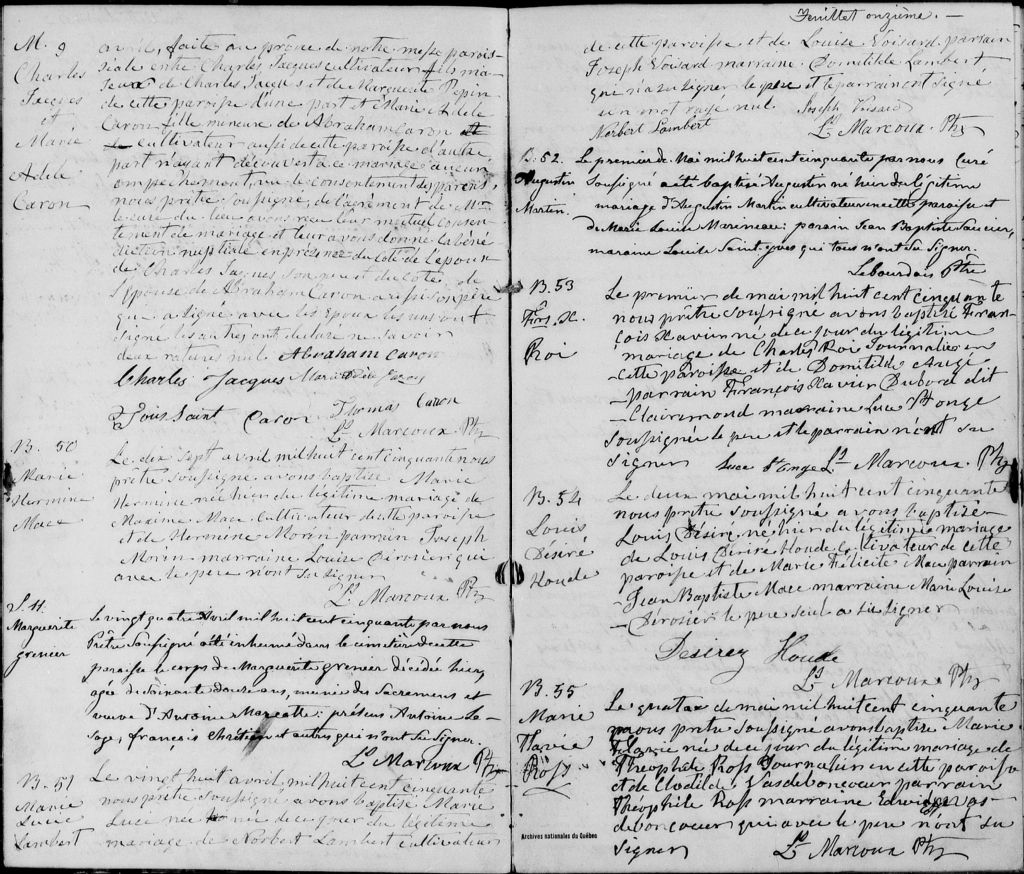 M. 9
Charles
Jacques
et
Marie
Adèle
Caron
avril, faite au prône de notre messe parois-
siale entre Charles Jacques cultivateur fils ma-
jeur de Charles Jacques et de Marguerite Pepin
de cette paroisse d'une part et Marie Adele
Caron fille mineure de Abraham Caron
cultivateur aussi de cette paroisse d'autre
part n'ayant découvert à ce mariage aucun
empechement, vu le consentement des parens,
nous prêtre soussigné, de l'agrement de Mr
le curé du lieu avons reçu leur mutuel consen-
tement de mariage et leur avons donné la béné
diction nuptiale en présence du côté de l'epoux
de Charles Jacques son père et du côté de
l'epouse de Abraham Caron aussi son père
qui a signé avec les epoux les
signé les autres ont déclaré ne savoir
deux ratures nul. Abraham Caron
Charles Jacques Marie Adele Caron
Toussaint Caron Thomas Caron
Ls Marcoux Ptr
B. 50
Marie
Hermine
Mace
Le dix sept avril mil huit cent cinquante nous
prêtre soussigné avons baptisé Marie
Hermine née hier du légitime mariage de
Maxime Mace cultivateur de cette paroisse
et de Hermine Morin parrain Joseph
Morin marraine Louise Desrosier qui
avec le pere n'ont su signer
Ls Marcoux Ptr
S. 11.
Marguerite
grenier
Le vingt quatre Avril mil huit cent cinquante par nous
Prêtre Soussigné a été inhumé dans le cimetière de cette
paroisse le corps de Marguerite grenier décédée hier,
agée de Soixante douze ans, munie des Sacremens et
veuve d'Antoine Marcotte: présens Antoine Le-
sage, françois Chrétien et autres qui n'ont su Signer.
Ls Marcoux Ptr
B. 51
Marie
Lucie
Lambert
Le vingt huit avril mil huit cent cinquante
nous prêtre soussigné avons baptisé Marie
Luci née née de ce jour du légitime
mariage de Norbert Lambert cultivateur
Feuillet onzième.—
de cette paroisse et de Louise Voisard parrain
Joseph Voisard marraine Domitilde Lambert
qui n'a su signer le pere et le parrain ont signé
un mot rayé nul Joseph Voisard
Norbert Lambert Ls Marcoux Ptr
B. 52.
Augustin
Martin.
Le premier de Mai mil huit cent cinquante par nous Curé
Soussigné a été baptisé Augustin né hier du légitime
mariage d'Augustin Martin cultivateur en cette paroisse et
de Marie Louise Marineau: parain Jean Baptiste Saucier,
maraine Louise Saint-yves qui tous n'ont su Signer.
Lebourdais Ptre
B. 53
Frs. X.
Roi
Le premier de mai mil huit cent cinquante
nous prêtre soussigné avons baptisé Fran-
çois Xavier né de ce jour du légitime
mariage de Charles Roi Journalier en
cette paroisse et de Domitilde Augé
parrain François Xavier Dubord dit
Clairemond marraine Luce St Onge
soussignée le pere et le parrain n'ont su
signer Luce St onge Ls Marcoux Ptr
B. 54
Louis
Désiré
Houde
Le deux mai mil huit cent cinquante
nous prêtre soussigné avons baptisé
Louis Désiré né hier du légitime mariage
de Louis Désiré Houde cultivateur de cette
paroisse et de Marie Félicité Mace parrain
Jean Baptiste Mace marraine Marie Louise
Dérosier le pere seul a su signer
Desirez Houde
Ls Marcoux Ptr
B. 55
Marie
Flavie
Ross
Le quatre de mai mil huit cent cinquante
nous prêtre soussigné avons baptisé Marie
Flavie née de ce jour du légitime mariage de
Theophile Ross Journalier en cette paroisse
et de Clotilde Vasdeboncœur parrain
Theophile Ross marraine Edwidge Vas-
deboncoeur qui avec le pere n'ont su
signer Ls Marcoux Ptr
Archives nationales du Québec